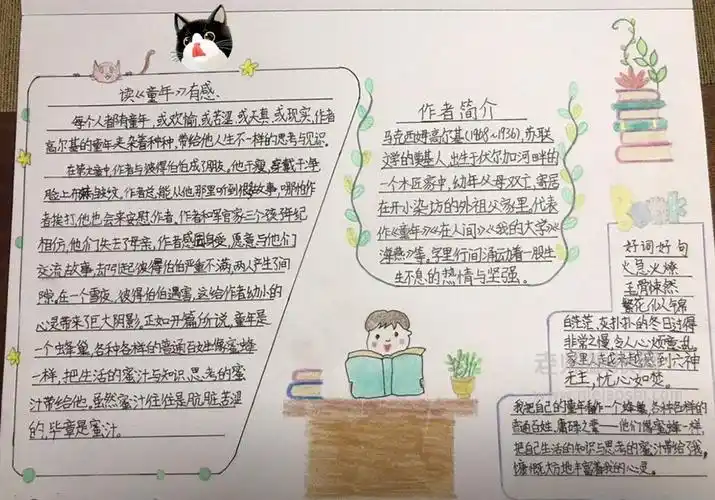 读《童年》有感
每个人都有童年，或欢愉，或苦涩，或天真，或现实，作者
高尔基的童年夹杂着种种，带给他人生不一样的思考与见识。
在第文章中，作者与彼得伯伯成了朋友，他干瘦，穿戴干净，
脸上布满皱纹，作者总能从他那里听到很多故事，哪怕作
者挨打，他也会来安慰作者，作者和写官家三个孩子年纪
相仿，他们失去了母亲，作者感同身受，愿意与他们
交流故事，却引起彼得伯伯严重不满，两人产生了间
隙，在一个雪夜，彼得伯伯遇害，这给作者幼小的
心灵带来了巨大阴影，正如开篇所说，童年是
一个蜂巢，各种各样的普通百姓像蜜蜂
一样，把生活的蜜汁与知识、思考的蜜
汁带给他。虽然蜜汁往往是肮脏苦涩
的，毕竟是蜜汁。
作者简介
马克西姆高尔基(1968~1936)，苏联
文学的奠基人，出生于伏尔加河畔的
一个木匠家中，幼年父母双亡，寄居
在开小染坊的外祖父家里。代表
作《童年》《在人间》《我的大学》《
海燕》等，字里行间涌动着一股生
生不息的热情与坚强。
Book
好词好句
火急火燎
毛骨悚然
繁花似锦
白茫茫，灰扑扑的冬日过得
非常之慢，令人心烦意乱，
家里人越来越感到六神
无主，忧心如焚。
我把自己的童年看作一个蜂巢，各种各样的
普通百姓，庸碌之辈——他们像蜜蜂一样，
把自己生活的知识与思考的蜜汁带给了我，
慷慨大方地丰富着我的心灵。